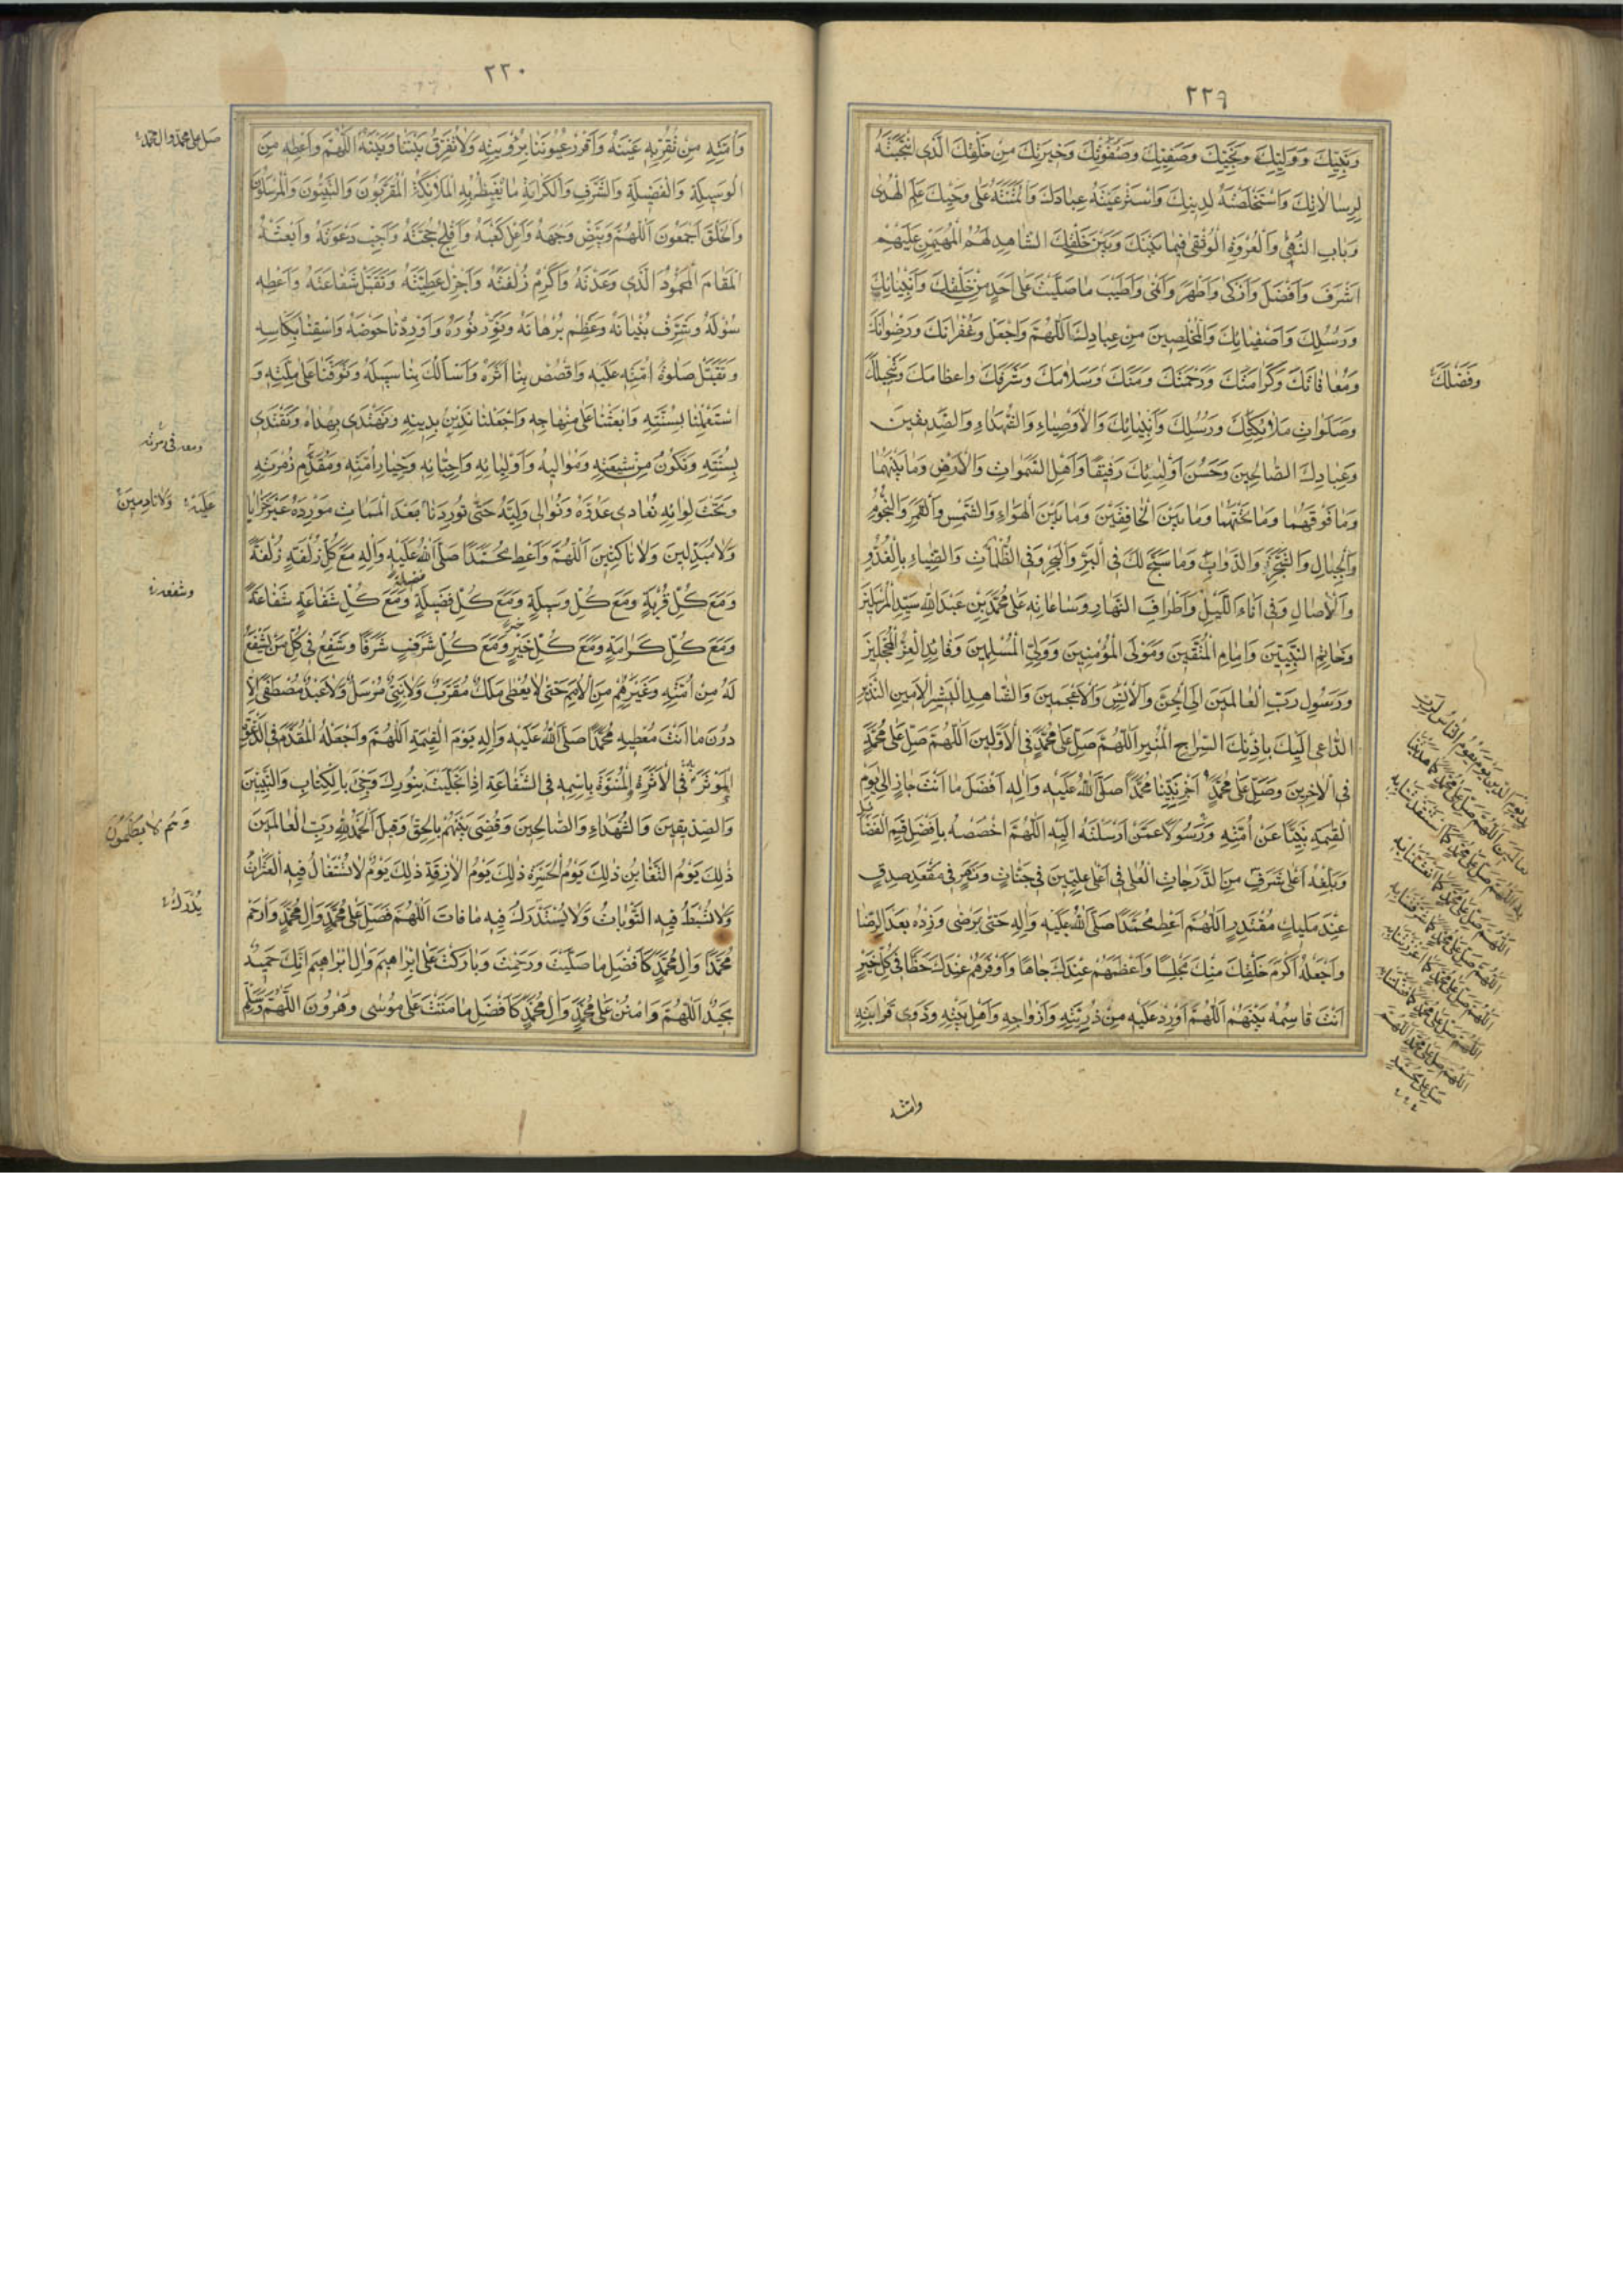 ٢٢٩
وَنَبِيِّكَ وَوَلِيِّكَ وَنَجِيِّكَ وَصَفِيِّكَ وَصَفْوَتِكَ وَخِيَرَتِكَ مِنْ خَلْقِكَ الَّذِى انْتَجَبْتَهُ
لِرِسَالَاتِكَ وَاسْتَخْلَصْتَهُ لِدِينِكَ وَاسْتَرْعَيْتَهُ عِبَادَكَ وَائْتَمَنْتَهُ عَلَى وَحْيِكَ عَلَمِ الْهُدَى
وَبَابِ النُّهَى وَالْعُرْوَةِ الْوُثْقَى فِيمَا بَيْنَكَ وَبَيْنَ خَلْقِكَ الشَّاهِدِ لَهُمُ الْمُهَيْمِنِ عَلَيْهِمْ
اَشْرَفَ وَاَفْضَلَ وَاَزْكَى وَاَطْهَرَ وَاَنْمَى وَاَطْيَبَ مَا صَلَّيْتَ عَلَى اَحَدٍ مِنْ خَلْقِكَ وَاَنْبِيَائِكَ
وَرُسُلِكَ وَاَصْفِيَائِكَ وَالْمُخْلِصِينَ مِنْ عِبَادِكَ اَللّٰهُمَّ وَاجْعَلْ وَغُفْرَانَكَ وَرِضْوَانَكَ
وَمُعَافَاتَكَ وَكَرَامَتَكَ وَرَحْمَتَكَ وَمَنَّكَ وَسَلَامَكَ وَشَرَفَكَ وَاِعْظَامَكَ وَتَبْجِيلَكَ
وَفَضْلَكَ
وَصَلَوَاتِ مَلَائِكَتِكَ وَرُسُلِكَ وَاَنْبِيَائِكَ وَالْاَوْصِيَاءِ وَالشُّهَدَاءِ وَالصِّدِّيقِينَ
وَعِبَادِكَ الصَّالِحِينَ وَحَسُنَ اُولٰئِكَ رَفِيقًا وَاَهْلِ السَّمَوَاتِ وَالْاَرْضِ وَمَا بَيْنَهُمَا
وَمَا فَوْقَهُمَا وَمَا تَحْتَهُمَا وَمَا بَيْنَ الْخَافِقَيْنِ وَمَا بَيْنَ الْهَوَاءِ وَالشَّمْسِ وَالْقَمَرِ وَالنُّجُومِ
وَالْجِبَالِ وَالشَّجَرِ وَالدَّوَابِّ وَمَا سَبَّحَ لَكَ فِى الْبَرِّ وَالْبَحْرِ وَفِى الظُّلُمَاتِ وَالضِّيَاءِ بِالْغُدُوِّ
وَالْاٰصَالِ وَفِى اٰنَاءِ اللَّيْلِ وَاَطْرَافِ النَّهَارِ وَسَاعَاتِهِ عَلَى مُحَمَّدِ بْنِ عَبْدِ اللّٰهِ سَيِّدِ الْمُرْسَلِينَ
وَخَاتَمِ النَّبِيِّينَ وَاِمَامِ الْمُتَّقِينَ وَمَوْلَى الْمُؤْمِنِينَ وَوَلِىِّ الْمُسْلِمِينَ وَقَائِدِ الْغُرِّ الْمُحَجَّلِينَ
وَرَسُولِ رَبِّ الْعَالَمِينَ اِلَى الْجِنِّ وَالْاِنْسِ وَالْاَعْجَمِينَ وَالشَّاهِدِ الْبَشِيرِ الْاَمِينِ النَّذِيرِ
الدَّاعِى اِلَيْكَ بِاِذْنِكَ السِّرَاجِ الْمُنِيرِ اَللّٰهُمَّ صَلِّ عَلَى مُحَمَّدٍ فِى الْاَوَّلِينَ اَللّٰهُمَّ صَلِّ عَلَى مُحَمَّدٍ
فِى الْاٰخِرِينَ وَصَلِّ عَلَى مُحَمَّدٍ اَجْزِ نَبِيَّنَا مُحَمَّدًا صَلَّى اللّٰهُ عَلَيْهِ وَاٰلِهِ اَفْضَلَ مَا اَنْتَ جَازٍ اِلَى يَوْمِ
الْقِيٰمَةِ نَبِيًّا عَنْ اُمَّتِهِ وَرَسُولًا عَمَّنْ اَرْسَلْتَهُ اِلَيْهِ اَللّٰهُمَّ اخْصُصْهُ بِاَفْضَلِ قِسَمِ الْفَضَائِلِ
وَبَلِّغْهُ اَعْلَى شَرَفٍ مِنَ الدَّرَجَاتِ الْعُلَى فِى اَعْلَى عِلِّيِّينَ فِى جَنَّاتٍ وَنَهَرٍ فِى مَقْعَدِ صِدْقٍ
عِنْدَ مَلِيكٍ مُقْتَدِرٍ اَللّٰهُمَّ اَعْطِ مُحَمَّدًا صَلَّى اللّٰهُ عَلَيْهِ وَاٰلِهِ حَتَّى يَرْضَى وَزِدْهُ بَعْدَ الرِّضَا
وَاجْعَلْهُ اَكْرَمَ خَلْقِكَ مِنْكَ مَجْلِسًا وَاَعْظَمَهُمْ عِنْدَكَ جَاهًا وَاَوْفَرَهُمْ عِنْدَكَ حَظًّا فِى كُلِّ خَيْرٍ
اَنْتَ قَاسِمُهُ بَيْنَهُمْ اَللّٰهُمَّ اَوْرِدْ عَلَيْهِ مِنْ ذُرِّيَّتِهِ وَاَزْوَاجِهِ وَاَهْلِ بَيْتِهِ وَذَوِى قَرَابَتِهِ
يَوْمَ الدِّينِ يَوْمَ يَقُومُ النَّاسُ لِرَبِّ
الْعَالَمِينَ اَللّٰهُمَّ صَلِّ عَلَى مُحَمَّدٍ كَمَا هَدَيْتَنَا
بِهِ اَللّٰهُمَّ صَلِّ عَلَى مُحَمَّدٍ كَمَا اسْتَنْقَذْتَنَا بِهِ
اَللّٰهُمَّ صَلِّ عَلَى مُحَمَّدٍ كَمَا اَنْعَشْتَنَا بِهِ
اَللّٰهُمَّ صَلِّ عَلَى مُحَمَّدٍ كَمَا شَرَّفْتَنَا بِهِ
اَللّٰهُمَّ صَلِّ عَلَى مُحَمَّدٍ كَمَا اَعْزَزْتَنَا بِهِ
اَللّٰهُمَّ صَلِّ عَلَى مُحَمَّدٍ كَمَا فَضَّلْتَنَا بِهِ
اَللّٰهُمَّ صَلِّ عَلَى مُحَمَّدٍ اَللّٰهُمَّ
صَلِّ عَلَى مُحَمَّدٍ
وامته
٢٢٠
وَاُمَّتِهِ مَنْ تُقِرُّ بِهِ عَيْنَهُ وَاَقْرِرْ عُيُونَنَا بِرُؤْيَتِهِ وَلَا تُفَرِّقْ بَيْنَنَا وَبَيْنَهُ اَللّٰهُمَّ وَاَعْطِهِ مِنَ
صل على محمد وال محمد
الْوَسِيلَةِ وَالْفَضِيلَةِ وَالشَّرَفِ وَالْكَرَامَةِ مَا يَغْبِطُهُ بِهِ الْمَلَائِكَةُ الْمُقَرَّبُونَ وَالنَّبِيُّونَ وَالْمُرْسَلُونَ
وَالْخَلْقُ اَجْمَعُونَ اَللّٰهُمَّ وَبَيِّضْ وَجْهَهُ وَاَعْلِ كَعْبَهُ وَاَفْلِجْ حُجَّتَهُ وَاَجِبْ دَعْوَتَهُ وَابْعَثْهُ
الْمَقَامَ الْمَحْمُودَ الَّذِى وَعَدْتَهُ وَاَكْرِمْ زُلْفَتَهُ وَاَجْزِلْ عَطِيَّتَهُ وَتَقَبَّلْ شَفَاعَتَهُ وَاَعْطِهِ
سُؤْلَهُ وَشَرِّفْ بُنْيَانَهُ وَعَظِّمْ بُرْهَانَهُ وَنَوِّرْ نُورَهُ وَاَوْرِدْنَا حَوْضَهُ وَاسْقِنَا بِكَاْسِهِ
وَتَقَبَّلْ صَلٰوةَ اُمَّتِهِ عَلَيْهِ وَاقْصُصْ بِنَا اَثَرَهُ وَاَسْاَلُكَ بِنَا سَبِيلَهُ وَتَوَفَّنَا عَلَى مِلَّتِهِ وَ
اسْتَعْمِلْنَا بِسُنَّتِهِ وَابْعَثْنَا عَلَى مِنْهَاجِهِ وَاجْعَلْنَا نَدِينُ بِدِينِهِ وَنَهْتَدِى بِهُدَاهُ وَنَقْتَدِى
بِسُنَّتِهِ وَنَكُونُ مِنْ شِيعَتِهِ وَمَوَالِيهِ وَاَوْلِيَائِهِ وَاَحِبَّائِهِ وَخِيَارِ اُمَّتِهِ وَمُقَدَّمِ زُمْرَتِهِ
وَتَحْتَ لِوَائِهِ نُعَادِى عَدُوَّهُ وَنُوَالِى وَلِيَّهُ حَتَّى تُورِدَنَا بَعْدَ الْمَمَاتِ مَوْرِدَهُ غَيْرَ خَزَايَا
عَلَيْهِ وَلَا نَادِمِينَ
وَلَا مُبَدِّلِينَ وَلَا نَاكِثِينَ اَللّٰهُمَّ وَاَعْطِ مُحَمَّدًا صَلَّى اللّٰهُ عَلَيْهِ وَاٰلِهِ مَعَ كُلِّ زُلْفَةٍ زُلْفَةً
وَمَعَ كُلِّ قُرْبَةٍ وَمَعَ كُلِّ وَسِيلَةٍ وَمَعَ كُلِّ فَضِيلَةٍ فضيلة وَمَعَ كُلِّ شَفَاعَةٍ شَفَاعَةً
وَمَعَ كُلِّ كَرَامَةٍ وَمَعَ كُلِّ خَيْرٍ خيرا وَمَعَ كُلِّ شَرَفٍ شَرَفًا وَشَفِّعْهُ فِى كُلِّ مَنْ يَشْفَعُ
لَهُ مِنْ اُمَّتِهِ وَغَيْرِهِمْ مِنَ الْاُمَمِ حَتَّى لَا يُعْطَى مَلَكٌ مُقَرَّبٌ وَلَا نَبِىٌّ مُرْسَلٌ وَلَا عَبْدٌ مُصْطَفًى اِلَّا
دُونَ مَا اَنْتَ مُعْطِيهِ مُحَمَّدًا صَلَّى اللّٰهُ عَلَيْهِ وَاٰلِهِ يَوْمَ الْقِيٰمَةِ اَللّٰهُمَّ وَاجْعَلْهُ الْمُقَدَّمَ فِى الدَّعْوَةِ
الْمُؤْثَرَ بِهِ فِى الْاَثَرَةِ الْمُنَوَّهَ بِاسْمِهِ فِى الشَّفَاعَةِ اِذَا تَجَلَّيْتَ بِنُورِكَ وَجِىءَ بِالْكِتَابِ وَالنَّبِيِّينَ
وَالصِّدِّيقِينَ وَالشُّهَدَاءِ وَالصَّالِحِينَ وَقُضِىَ بَيْنَهُمْ بِالْحَقِّ وَقِيلَ الْحَمْدُ لِلّٰهِ رَبِّ الْعَالَمِينَ
وَهُمْ لَا يُظْلَمُونَ
ذٰلِكَ يَوْمُ التَّغَابُنِ ذٰلِكَ يَوْمُ الْحَسْرَةِ ذٰلِكَ يَوْمُ الْاٰزِفَةِ ذٰلِكَ يَوْمٌ لَا تُسْتَقَالُ فِيهِ الْعَثَرَاتُ
وَلَا تُبْسَطُ فِيهِ التَّوْبَاتُ وَلَا يُسْتَدْرَكُ فِيهِ مَا فَاتَ اَللّٰهُمَّ فَصَلِّ عَلَى مُحَمَّدٍ وَاٰلِ مُحَمَّدٍ وَارْحَمْ
مُحَمَّدًا وَاٰلَ مُحَمَّدٍ كَاَفْضَلِ مَا صَلَّيْتَ وَرَحِمْتَ وَبَارَكْتَ عَلَى اِبْرَاهِيمَ وَاٰلِ اِبْرَاهِيمَ اِنَّكَ حَمِيدٌ
مَجِيدٌ اَللّٰهُمَّ وَامْنُنْ عَلَى مُحَمَّدٍ وَاٰلِ مُحَمَّدٍ كَاَفْضَلِ مَا مَنَنْتَ عَلَى مُوسَى وَهٰرُونَ اَللّٰهُمَّ وَسَلِّمْ